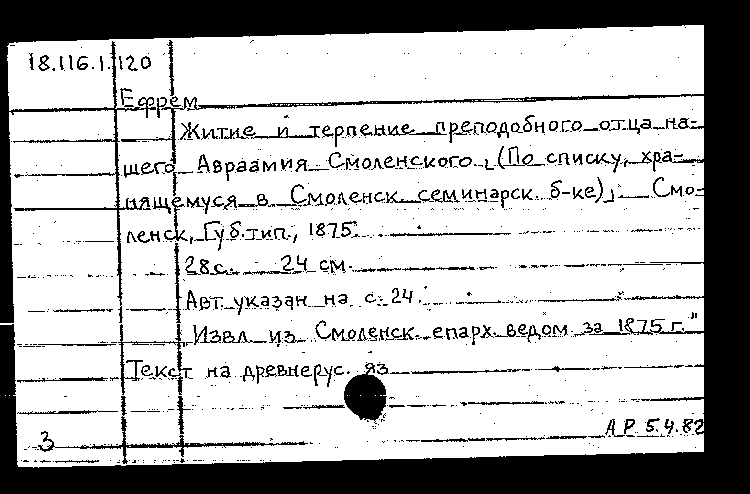 18.116.1.120
Ефрем
Житие и терпение преподобного отца на-
шего Авраамия Смоленского, (По списку, хра-
нящемуся в Смоленск. семинарск. б-ке). Смо-
ленск, Губ. тип., 1875.
28с. 24 см.
Авт указан на с. 24.
Извл. из Смоленск. епарх. ведом за 1875 г."
Текст на древнерус. яз
АР 5.4.82
3